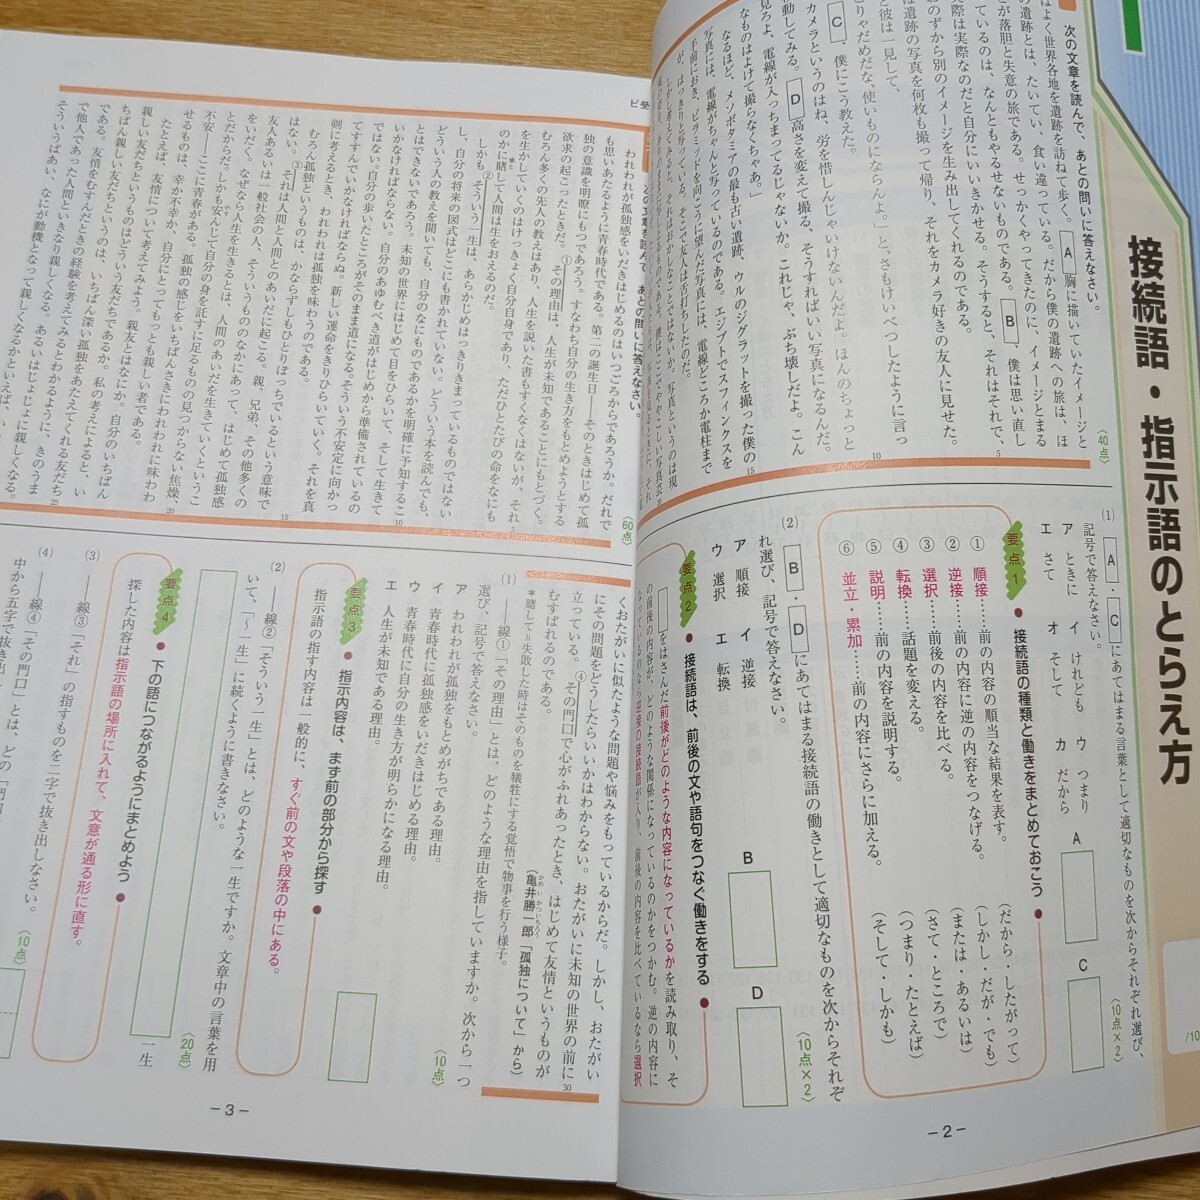 接続語・指示語のとらえ方
次の文章を読んで、あとの問いに答えなさい。
〈40点〉
はよく世界各地を遺跡を訪ねて歩く。A胸に描いていたイメージと
の遺跡とは、たいてい、食い違っている。だから僕の遺跡への旅は、ほ
とが落胆と失意の旅である。せっかくやってきたのに、イメージとまる
ているのは、なんともやるせないものである。B、僕は思い直し
実際は実際なのだと自分にいいきかせる。そうすると、それはそれで、
おのずから別のイメージを生み出してくれるのである。
は遺跡の写真を何枚も撮って帰り、それをカメラ好きの友人に見せた。
と彼は一見して、
とりゃだめだな、使いものにならんよ。」と、さもけいべつしたように言っ
C、僕にこう教えた。
カメラというのはね、労を惜しんじゃいけないんだよ。ほんのちょっと
動してみる。D高さを変えて撮る、そうすればいい写真になるんだ。
見ろよ、電線が入っちまってるじゃないか。これじゃ、ぶち壊しだよ。こん
なものはよけて撮らなくちゃあ。」
なるほど、メソポタミアの最も古い遺跡、ウルのジグラットを撮った僕の
写真には、電線がちゃんと写っているのである。エジプトでスフィンクスを
手前におき、ピラミッドを向こうに望んだ写真には、電線どころか電柱まで
が、はっきりと写っている。そこで友人は舌打ちしたのだ。
(1) A・Cにあてはまる言葉として適切なものを次からそれぞれ選び、
記号で答えなさい。
〈10点×2〉
ア ときに イ けれども ウ つまり
エ さて オ そして カ だから
A
C
要点1 ● 接続語の種類と働きをまとめておこう ●
① 順接……前の内容の順当な結果を表す。(だから・したがって)
② 逆接……前の内容に逆の内容をつなげる。(しかし・だが・でも)
③ 選択……前後の内容を比べる。(または・あるいは)
④ 転換……話題を変える。(さて・ところで)
⑤ 説明……前の内容を説明する。(つまり・たとえば)
⑥ 並立・累加……前の内容にさらに加える。(そして・しかも)
(2) B・Dにあてはまる接続語の働きとして適切なものを次からそれぞ
れ選び、記号で答えなさい。
〈10点×2〉
ア 順接 イ 逆接
ウ 選択 エ 転換
B
D
要点2 ● 接続語は、前後の文や語句をつなぐ働きをする ●
をはさんだ前後がどのような内容になっているかを読み取り、そ
の前後の内容が、どのような関係になっているのかをつかむ。逆の内容に
なっているのなら逆接の接続語が入り、前後の内容を比べているなら選択
－2－
〈60点〉
われわれが孤独感をいだきはじめるのはいつごろからであろうか。だれで
も思いあたるように青春時代である。第二の誕生日――そのときはじめて孤
独の意識を明瞭にもつであろう。すなわち自分の生き方をもとめようとする
欲求の起こったときだ。①その理由は、人生が未知であることにもとづく。
むろん多くの先人の教えはあり、人生を説いた書もすくなくはないが、それ
を生かしていくのはけっきょく自分自身であり、ただひとたびの命をなにも
のかに賭して人間は生をおえるのだ。
しかも②そういう一生は、あらかじめはっきりきまっているものではない
し、自分の将来の図式はどこにも書かれていない。どういう本を読んでも、
どういう人の教えを聞いても、自分のなにものであるかを明確に予知するこ
とはできないであろう。未知の世界にはじめて目をひらいて、そして生きて
いかなければならない。自分のあゆむべき道がはじめから準備されているの
ではない。自分の歩いたところがそのまま道になる。そういう不安定に向かっ
てすすんでいかなければならぬ。新しい運命をきりひらいていく。それを真
剣に考えるとき、われわれは孤独を味わうのである。
むろん孤独というものは、かならずしもひとりぼっちでいるという意味で
はない。③それは人間と人間とのあいだに起こる。親、兄弟、その他多くの
友人あるいは一般社会の人、そういうもののなかにあって、はじめて孤独感
をいだく。なぜなら人生を生きるとは、人間のあいだを生きていくというこ
とだからだ。しかも安んじて自分の身を託すに足るものの見つからない焦燥、
不安――ここに青春がある。孤独の感じをいちばんさきにわれわれに味わわ
せるものは、幸か不幸か、自分にとってもっとも親しい者である。
たとえば、友情について考えてみよう。親友とはなにか。自分のいちばん
親しい友だちというものはどういう友だちであるか。私の考えによると、い
ちばん親しい友だちというのは、いちばん深い孤独をあたえてくれる友だち
である。友情をむすんだときの経験を考えてみるとわかるように、きのうま
で他人であった人間といきなり親しくなる。あるいはじょじょに親しくなる。
そういうばあい、なにが動機となって親しくなるかといえば、
くおたがいに似たような問題や悩みをもっているからだ。しかし、おたがい
にその問題をどうしたらいいかはわからない。おたがいに未知の世界の前に
立っている。④その門口で心がふれあったとき、はじめて友情というものが
むすばれるのである。
(亀井勝一郎「孤独について」から)
*賭して＝失敗した時はそのものを犠牲にする覚悟で物事を行う様子。
(1) ――線①「その理由」とは、どのような理由を指していますか。次から一つ
選び、記号で答えなさい。
〈10点〉
ア われわれが孤独感をもとめがちである理由。
イ 青春時代に孤独感をいだきはじめる理由。
ウ 青春時代に自分の生き方が明らかになる理由。
エ 人生が未知である理由。
要点3 ● 指示内容は、まず前の部分から探す ●
指示語の指す内容は一般的に、すぐ前の文や段落の中にある。
(2) ――線②「そういう一生」とは、どのような一生ですか。文章中の言葉を用
いて、「～一生」に続くように書きなさい。
〈20点〉
一生
要点4 ● 下の語につながるようにまとめよう ●
探した内容は指示語の場所に入れて、文意が通る形に直す。
(3) ――線③「それ」の指すものを二字で抜き出しなさい。
〈10点〉
(4) ――線④「その門口」とは、どの「門口」
中から五字で抜き出
－3－